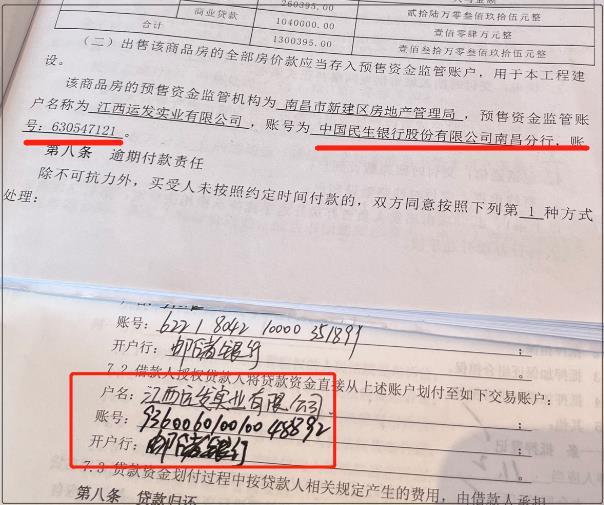 260395.00
商业贷款 贰拾陆万零叁佰玖拾伍元整
1040000.00 壹佰零肆万元整
合计 1300395.00 壹佰叁拾万零叁佰玖拾伍元整
(二)出售该商品房的全部房价款应当存入预售资金监管账户,用于本工程建
设。
该商品房的预售资金监管机构为 南昌市新建区房地产管理局 ,预售资金监管账
户名称为 江西运发实业有限公司 ,账号为 中国民生银行股份有限公司南昌分行,账
号:630547121 。
第八条 逾期付款责任
除不可抗力外,买受人未按照约定时间付款的,双方同意按照下列第 1 种方式
处理:
账号:6221 8042 10000 351899 ;
开户行:邮储银行 。
7.2 借款人授权贷款人将贷款资金直接从上述账户划付至如下交易账户:
户名:江西运发实业有限公司 ;
账号:936006010010048892 ;
开户行:邮储银行 。
7.3 贷款资金划付过程中按贷款人相关规定产生的费用,由借款人承担
第八条 贷款归还